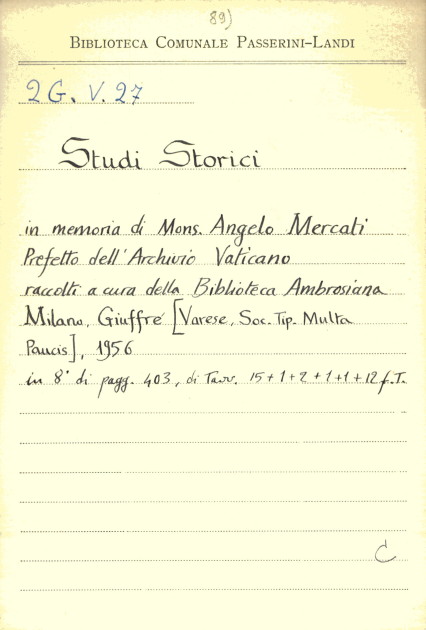 89)
BIBLIOTECA COMUNALE PASSERINI-LANDI
2G. V. 27
Studi Storici
in memoria di Mons. Angelo Mercati
Prefetto dell'Archivio Vaticano
raccolti a cura della Biblioteca Ambrosiana
Milano, Giuffré [Varese, Soc. Tip. Multa
Paucis], 1956
in 8° di pagg. 403, di Tavv. 15+1+2+1+1+12 f.T.
C